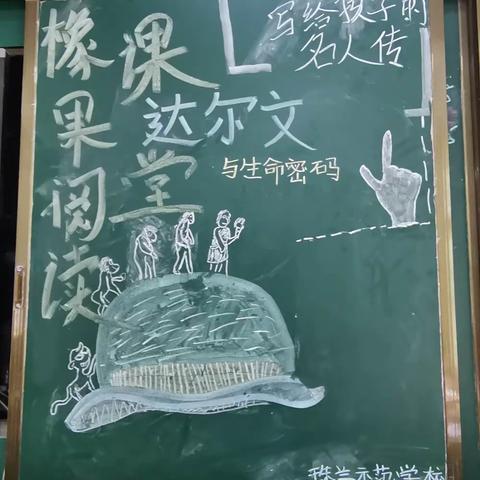 橡果阅读
课堂
写给孩子的
名人传
达尔文
与生命密码
珠兰示范学校